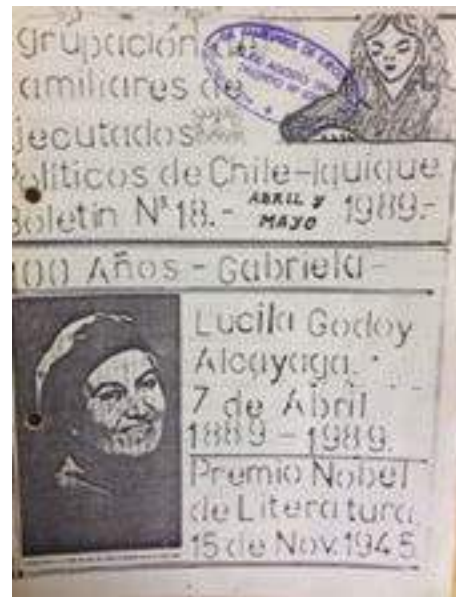 grupación de
amiliares de
jecutados
olíticos de Chile-Iquique
Boletin N° 18.- ABRIL Y MAYO 1989.-
100 Años - Gabriela -
Lucila Godoy
Alcayaga.
7 de Abril
1889 - 1989.
Premio Nobel
de Literatura
15 de Nov. 1945